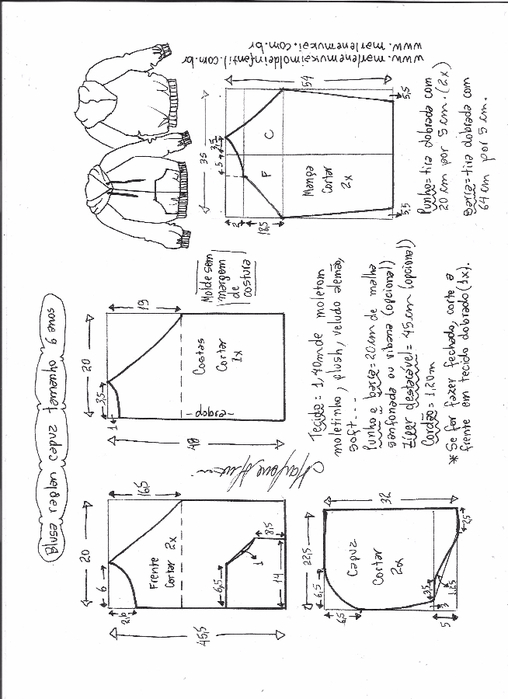 Blusa raglan capuz tamanho 6 anos
Molde sem
margem
de
costura
www.marlenemukaimoldeinfantil.com.br
www.marlenemukai.com.br
20
6
2,6
16,5
45,5
Frente
Cortar 2x
6,5
1
8,5
14
20
3,5
1
19
48
Costas
Cortar
1x
dobra
35
5
7,5
2
18,5
54
F
C
Manga
Cortar
2x
5,5
5,5
22,5
6,5
6,5
32
Capuz
Cortar
2x
3,5
3
5
2,5
Tecido = 1,40m de moletom,
moletinho, plush, veludo alemão,
soft...
Punho e barra = 20cm de malha
sanfonada ou ribana (opcional)
Zíper destacável = 45cm (opcional)
Cordão = 1,20m
* Se for fazer fechado, corte a
frente em tecido dobrado (1x).
Punho = tira dobrada com
20 cm por 5 cm. (2x)
Barra = tira dobrada com
64 cm por 5 cm.